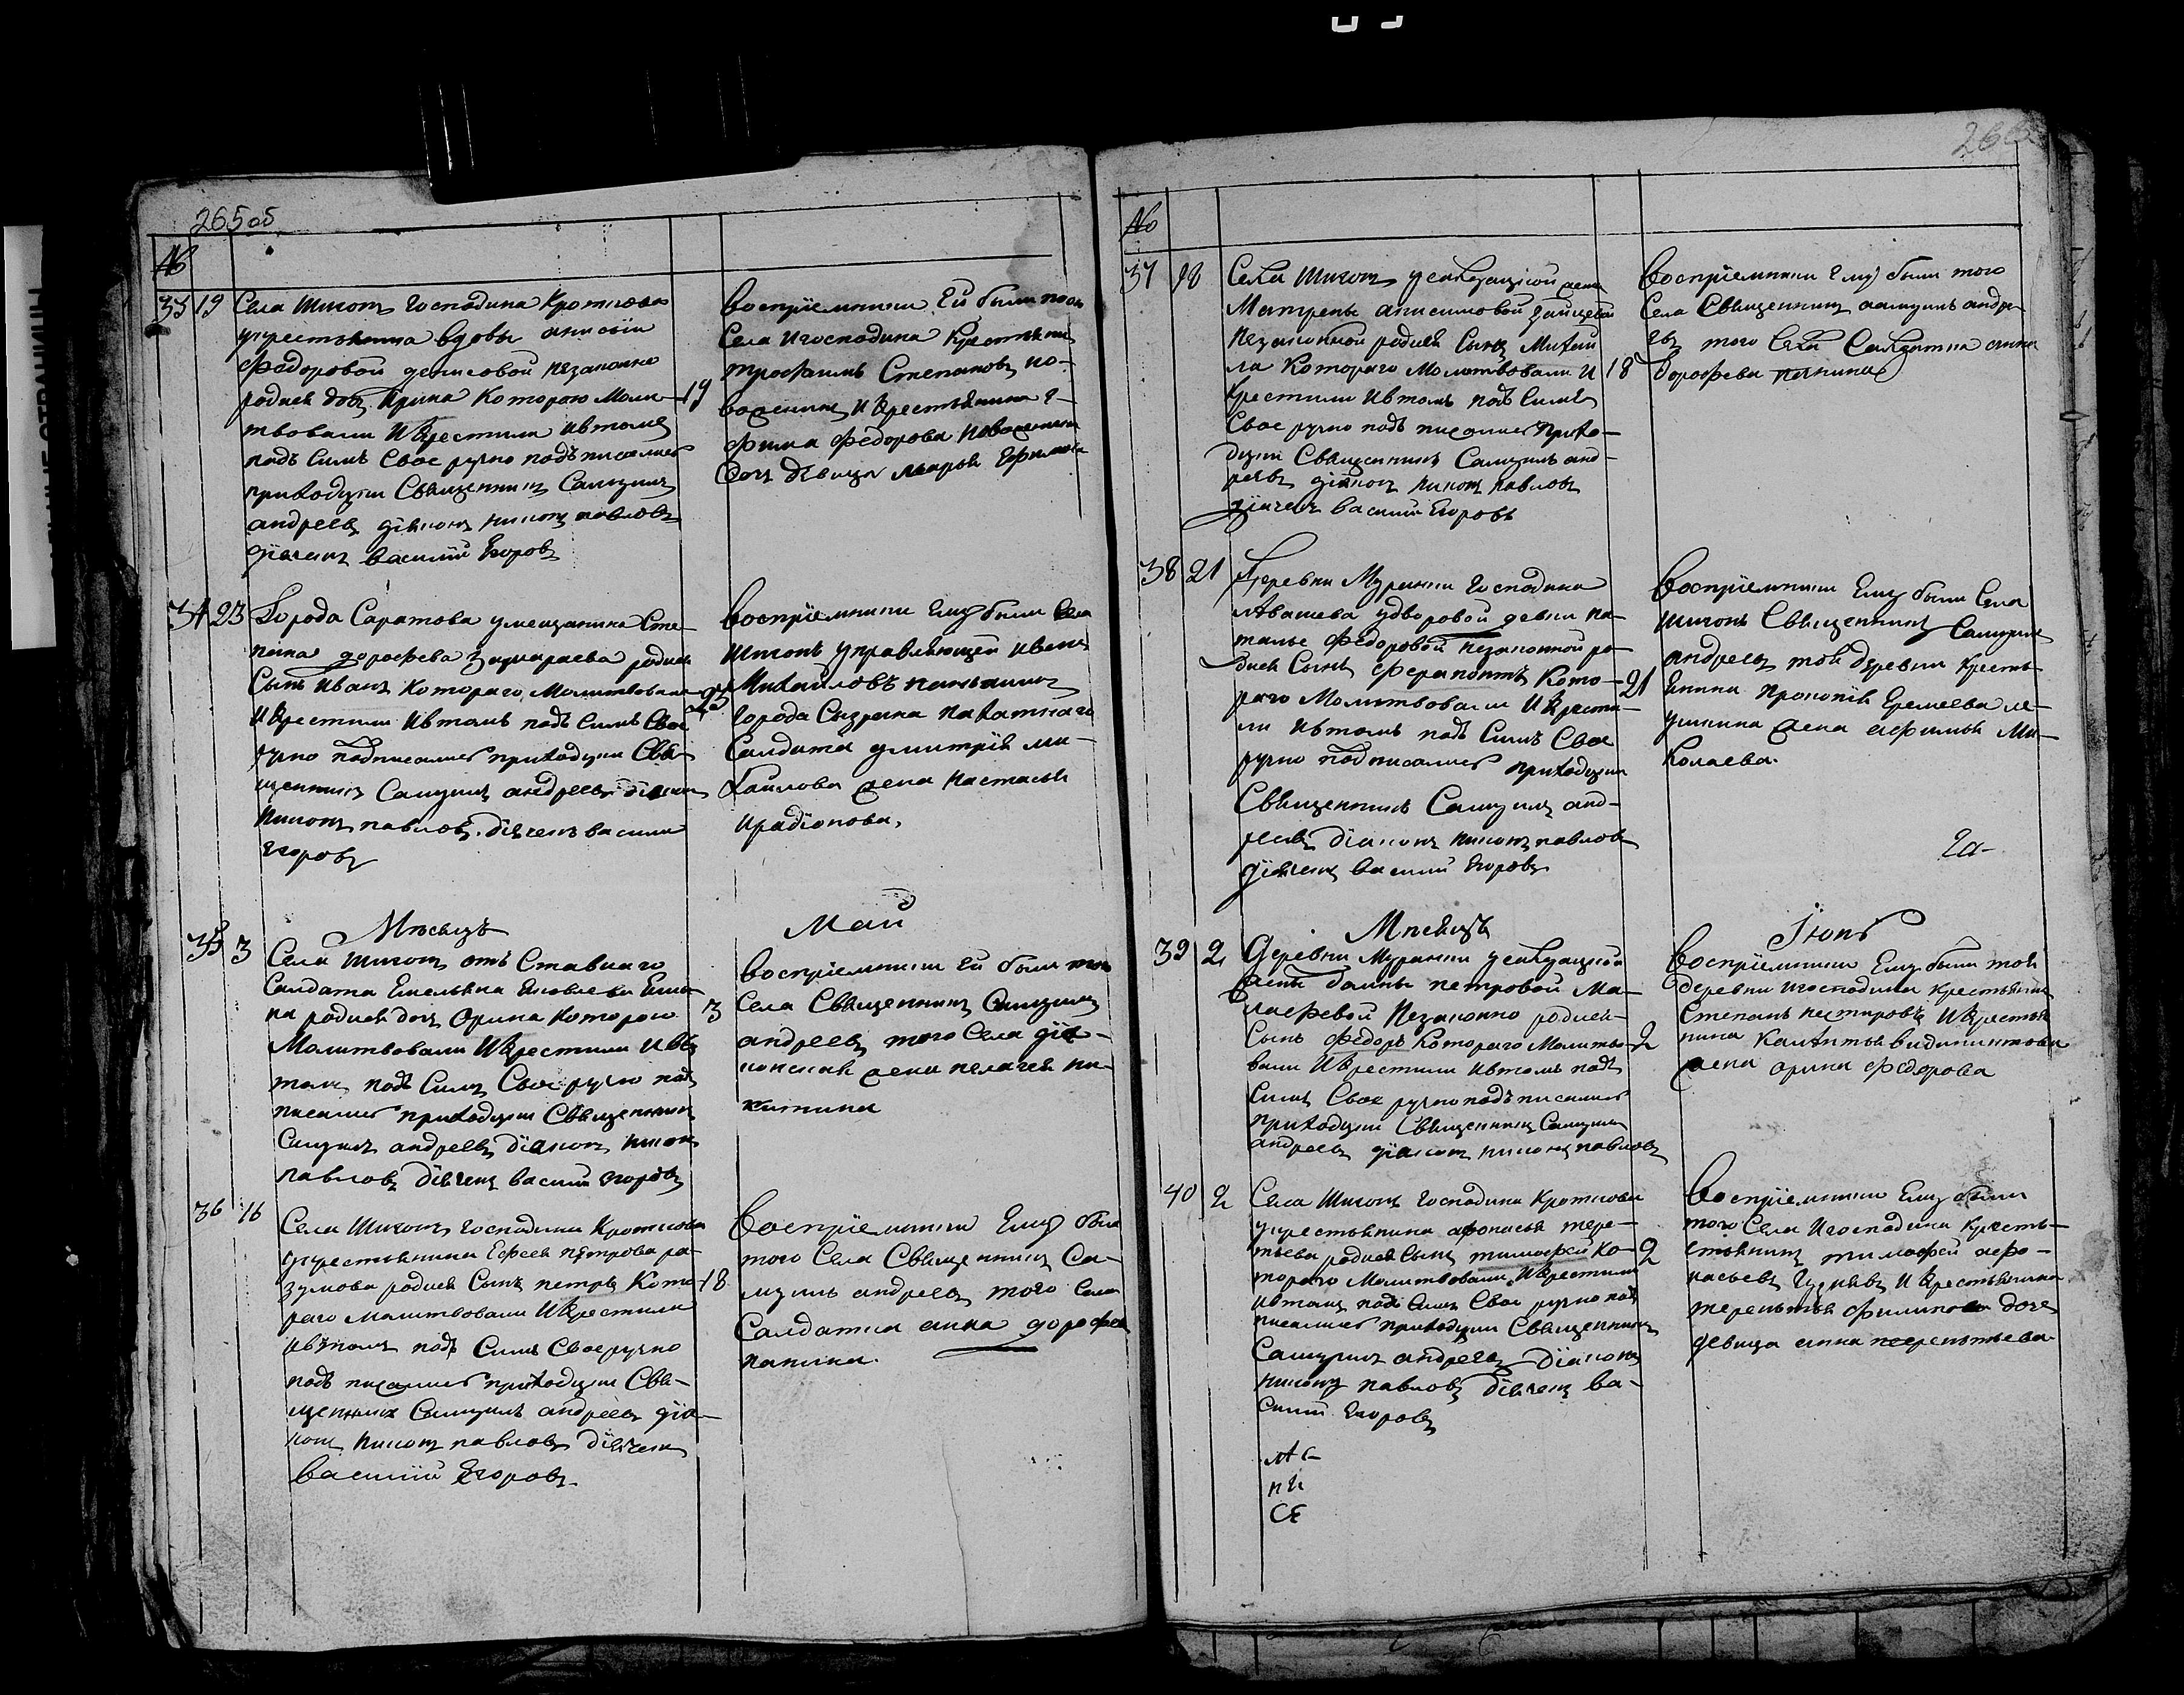 265об
№
33 19 Села Шигонъ Господина Кроткова
укрестьянина вдовы анисьи
Федоровой денисовой незаконно
родися дочь Ирина Которою Моли-
твовали И крестили ивтомъ
подъ Симъ Своеручно подъписались
приходцкии Священникъ Самуилъ
андреевъ діяконъ никонъ павловъ
діячекъ василій Егоровъ
19
восприемники Ей были
Села И господина Крестьянинъ
трофимъ Степановъ
И крестьянина Е-
фима Федорова
дочь девица марья Ефимова
34 23 Города Саратова умещанина Сте-
пана дорофеева родися
Сынъ Иванъ Котораго Молитвовали
И крестили Ивтомъ подъ Симъ Свое
ручно подписались приходцкии Свя-
щенникъ Самуилъ андреевъ діяконъ
Никонъ павловъ діячекъ василии
Егоровъ
23
восприемники Ему были Села
Шигонъ управляющей иванъ
Михайловъ
города Сызрана
Салдата дмитрія ми-
хайлова жена настасья
ирадіонова,
Мѣсяцъ Май
35 3 Села Шигонъ отъ Ставнаго
Салдата Емельяна Яковлева
родися дочь Орина Которою
Молитвовали И крестили Ивъ
томъ подъ Симъ Своеручно подъ
писались приходцкии Священникъ
Самуилъ андреевъ діяконъ никонъ
павловъ діячекъ василии Егоровъ
3
восприемники Ей были того
Села Священникъ Самуилъ
андреевъ того Села дія-
конская жена пелагея ни-
китина
36 16 Села Шигонъ господина Кроткова
укрестьянина Евсея петрова ра-
зумова родися Сынъ петръ Кото-
раго молитвовали И крестили
ивтомъ подъ Симъ Своеручно
подъ писались приходцкии Свя-
щенникъ Самуилъ андреевъ дія-
конъ Никонъ павловъ діячекъ
василій Егоровъ
18
восприемники Ему были
того Села Священникъ Са-
муилъ андреевъ того Села
Салдатка анна дорофеева
панина.
266
№
37 18 Села Шигонъ усалдацкой жены
Матрены анисимовой зайцевой
Незаконной родися Сынъ Михай
ла Котораго Молитвовали И
Крестили Ивтомъ подъ Симъ
Своеручно подъ писались Прихо-
дцкии Священникъ Самуилъ анд-
реевъ діяконъ никонъ павловъ
діячекъ василии Егоровъ
18
Восприемники Ему были того
Села Священникъ самуилъ андре-
евъ того Села Салдатка анна
дорофеева панина
38 21 Деревни Муранки господина
Авашева удворовой девки на-
тальи Федоровой незаконной ро-
дися Сынъ Ферапонтъ Кото-
раго Молитвовали И крести-
ли Ивтомъ подъ Симъ Свое
ручно подписались приходцкии
Священникъ Самуилъ анд-
реевъ діяконъ никонъ павловъ
діячекъ василии Егоровъ
21
восприемники Ему были Села
Шигонъ Священникъ Самуилъ
андреевъ той деревни кресть-
янина прокопія Еремеева ле-
ушкина жена афимья Ми-
колаева.
Мѣсяцъ Іюнь
39 2 Деревни Муранки усалдацкой
жены домны петровой Ма-
Незаконно родися
Сынъ Федоръ Котораго Молитво-
вали И крестили Ивтомъ подъ
Симъ Своеручно подъ писались
приходцкии Священникъ Самуилъ
андреевъ діяконъ никонъ павловъ
2
восприемники Ему были той
деревни и господина крестьянинъ
Степанъ нестеровъ И крестья
нина
жена орина Федорова
40 2 Села Шигонъ Господина Кроткова
укрестьянина афонасья тере-
тьева родися Сынъ тимофей Ко-
тораго Молитвовали И крестили
ивтомъ подъ Симъ Своеручно подъ
писались приходцкии Священникъ
Самуилъ андреевъ діяконъ
никонъ павловъ діячекъ ва-
силии Егоровъ
2
восприемники Ему были
того Села И господина кресть-
стьянинъ тимофей афо-
насьевъ И крестьянина
терентья филипова дочь
девица анна терентьева